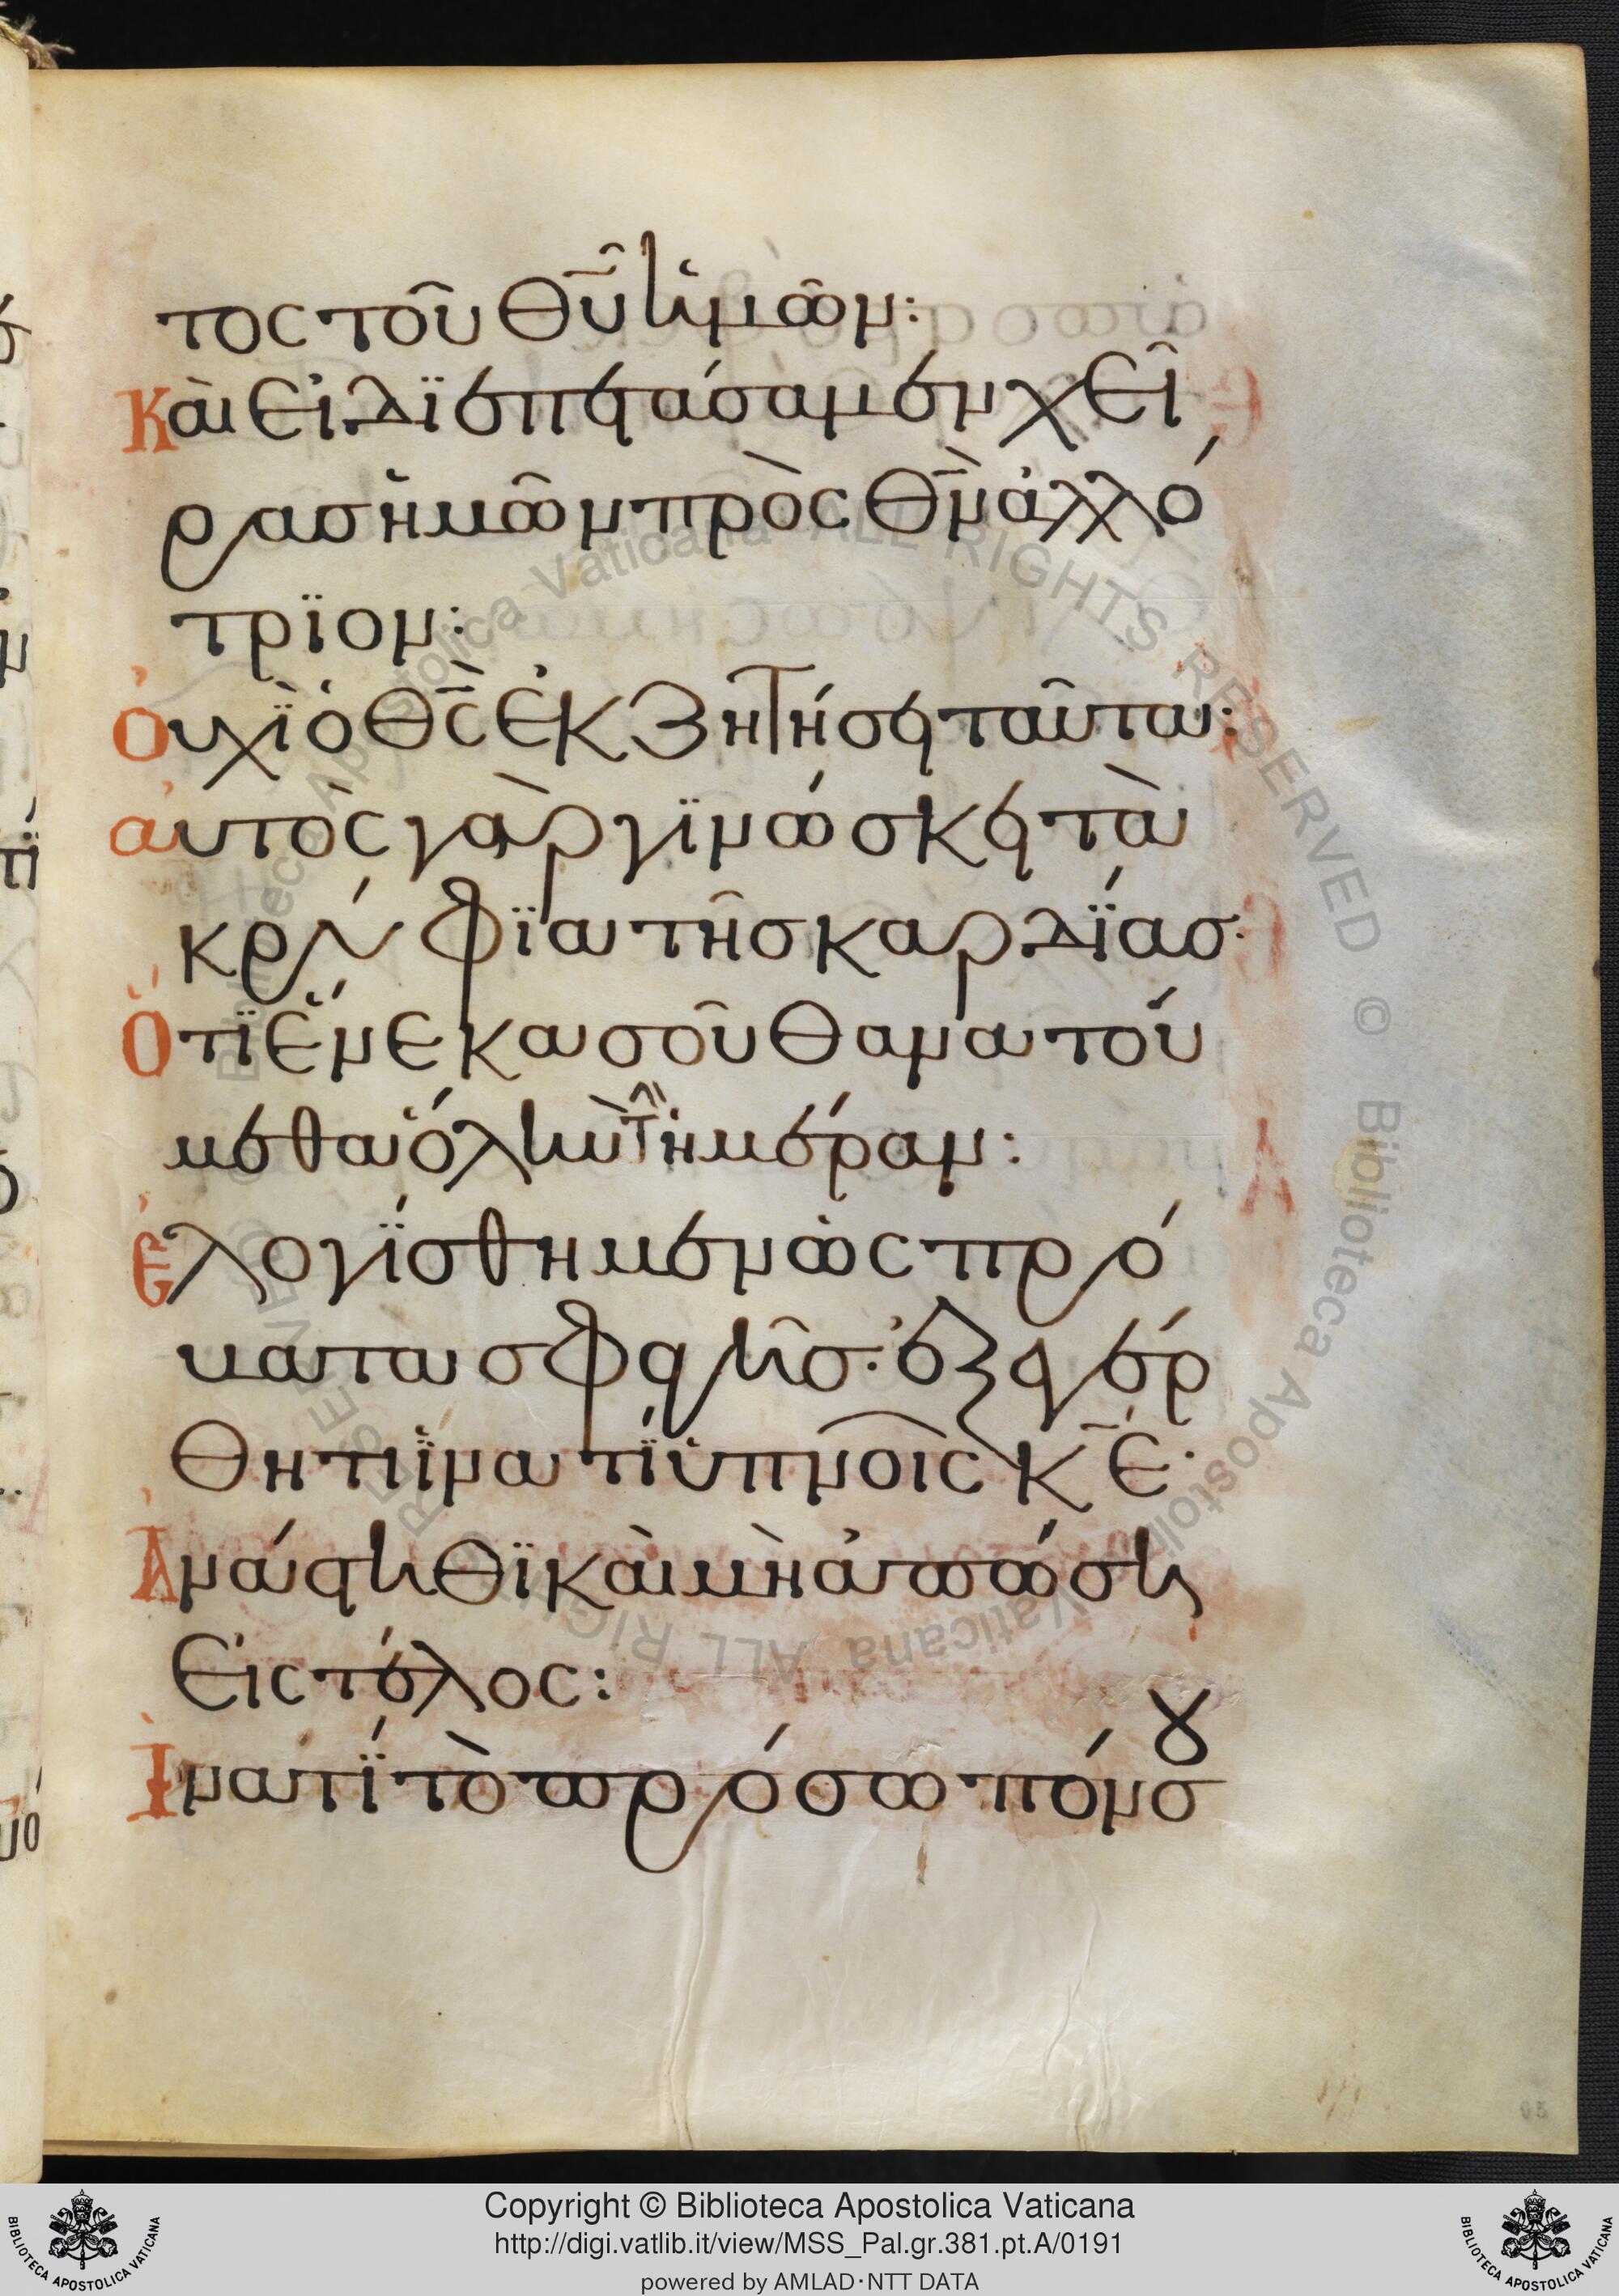 τος τοῦ θυ̅ ἡμῶν:
Καὶ εἰ δϊεπετάσαμεν χεῖ
ρασ ἡμῶν πρὸς θν̅ ἀλλό
τρϊον:
Ὀυχῒ ὁ θς̅ ἐκζητήσει ταῦτα:
ἀυτὸς γὰρ γϊνώσκει τὰ
κρύφϊα τῆσ καρδΐασ·
Ὅτϊ ἕνεκα σοῦ θανατού
μεθα ὅλην τὴν ἡμέραν:
Ἐλογΐσθημεν ὡς πρό
βατα σφαγῆσ· ἐξεγέρ
θητι ϊνατΐ ὑπνοῖς κε̅·
Ἀνάστηθϊ καὶ μὴ ἀπώση
εἰς τέλος:
Ἱνατΐ τὸ πρόσωπόν σου
Copyright © Biblioteca Apostolica Vaticana
http://digi.vatlib.it/view/MSS_Pal.gr.381.pt.A/0191
powered by AMLAD·NTT DATA